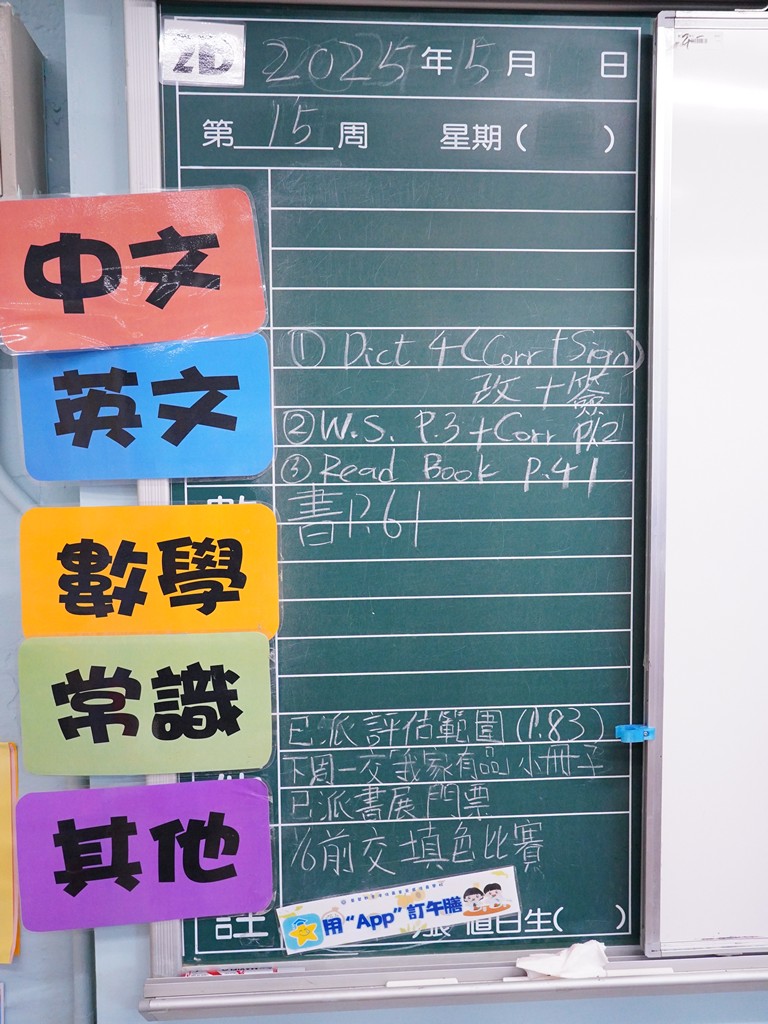 2D
2025年5月 日
第15周 星期( )
中文
英文
① Dict 4 (Corr + Sign)
改+簽
② W.S. P.3 + Corr P.2
③ Read Book P.41
數學
書P.61
常識
已派評估範圍(P.83)
下周一交我家有品小冊子
其他
已派書展門票
1/6前交填色比賽
用“App”訂午膳
註
值日生( )